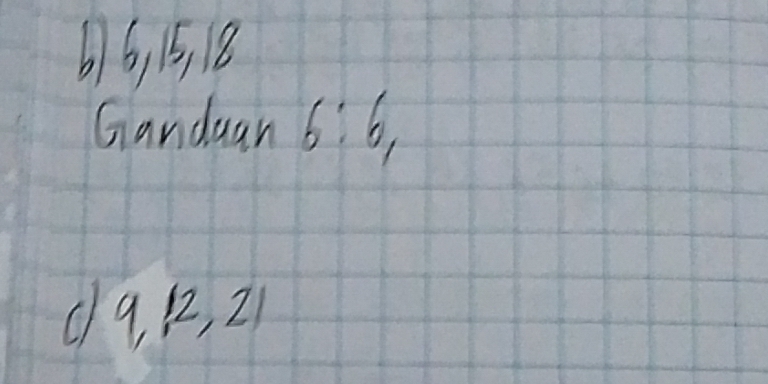 b) 6, 15, 18
Gandaan 6: 6,
c) 9, 12, 21